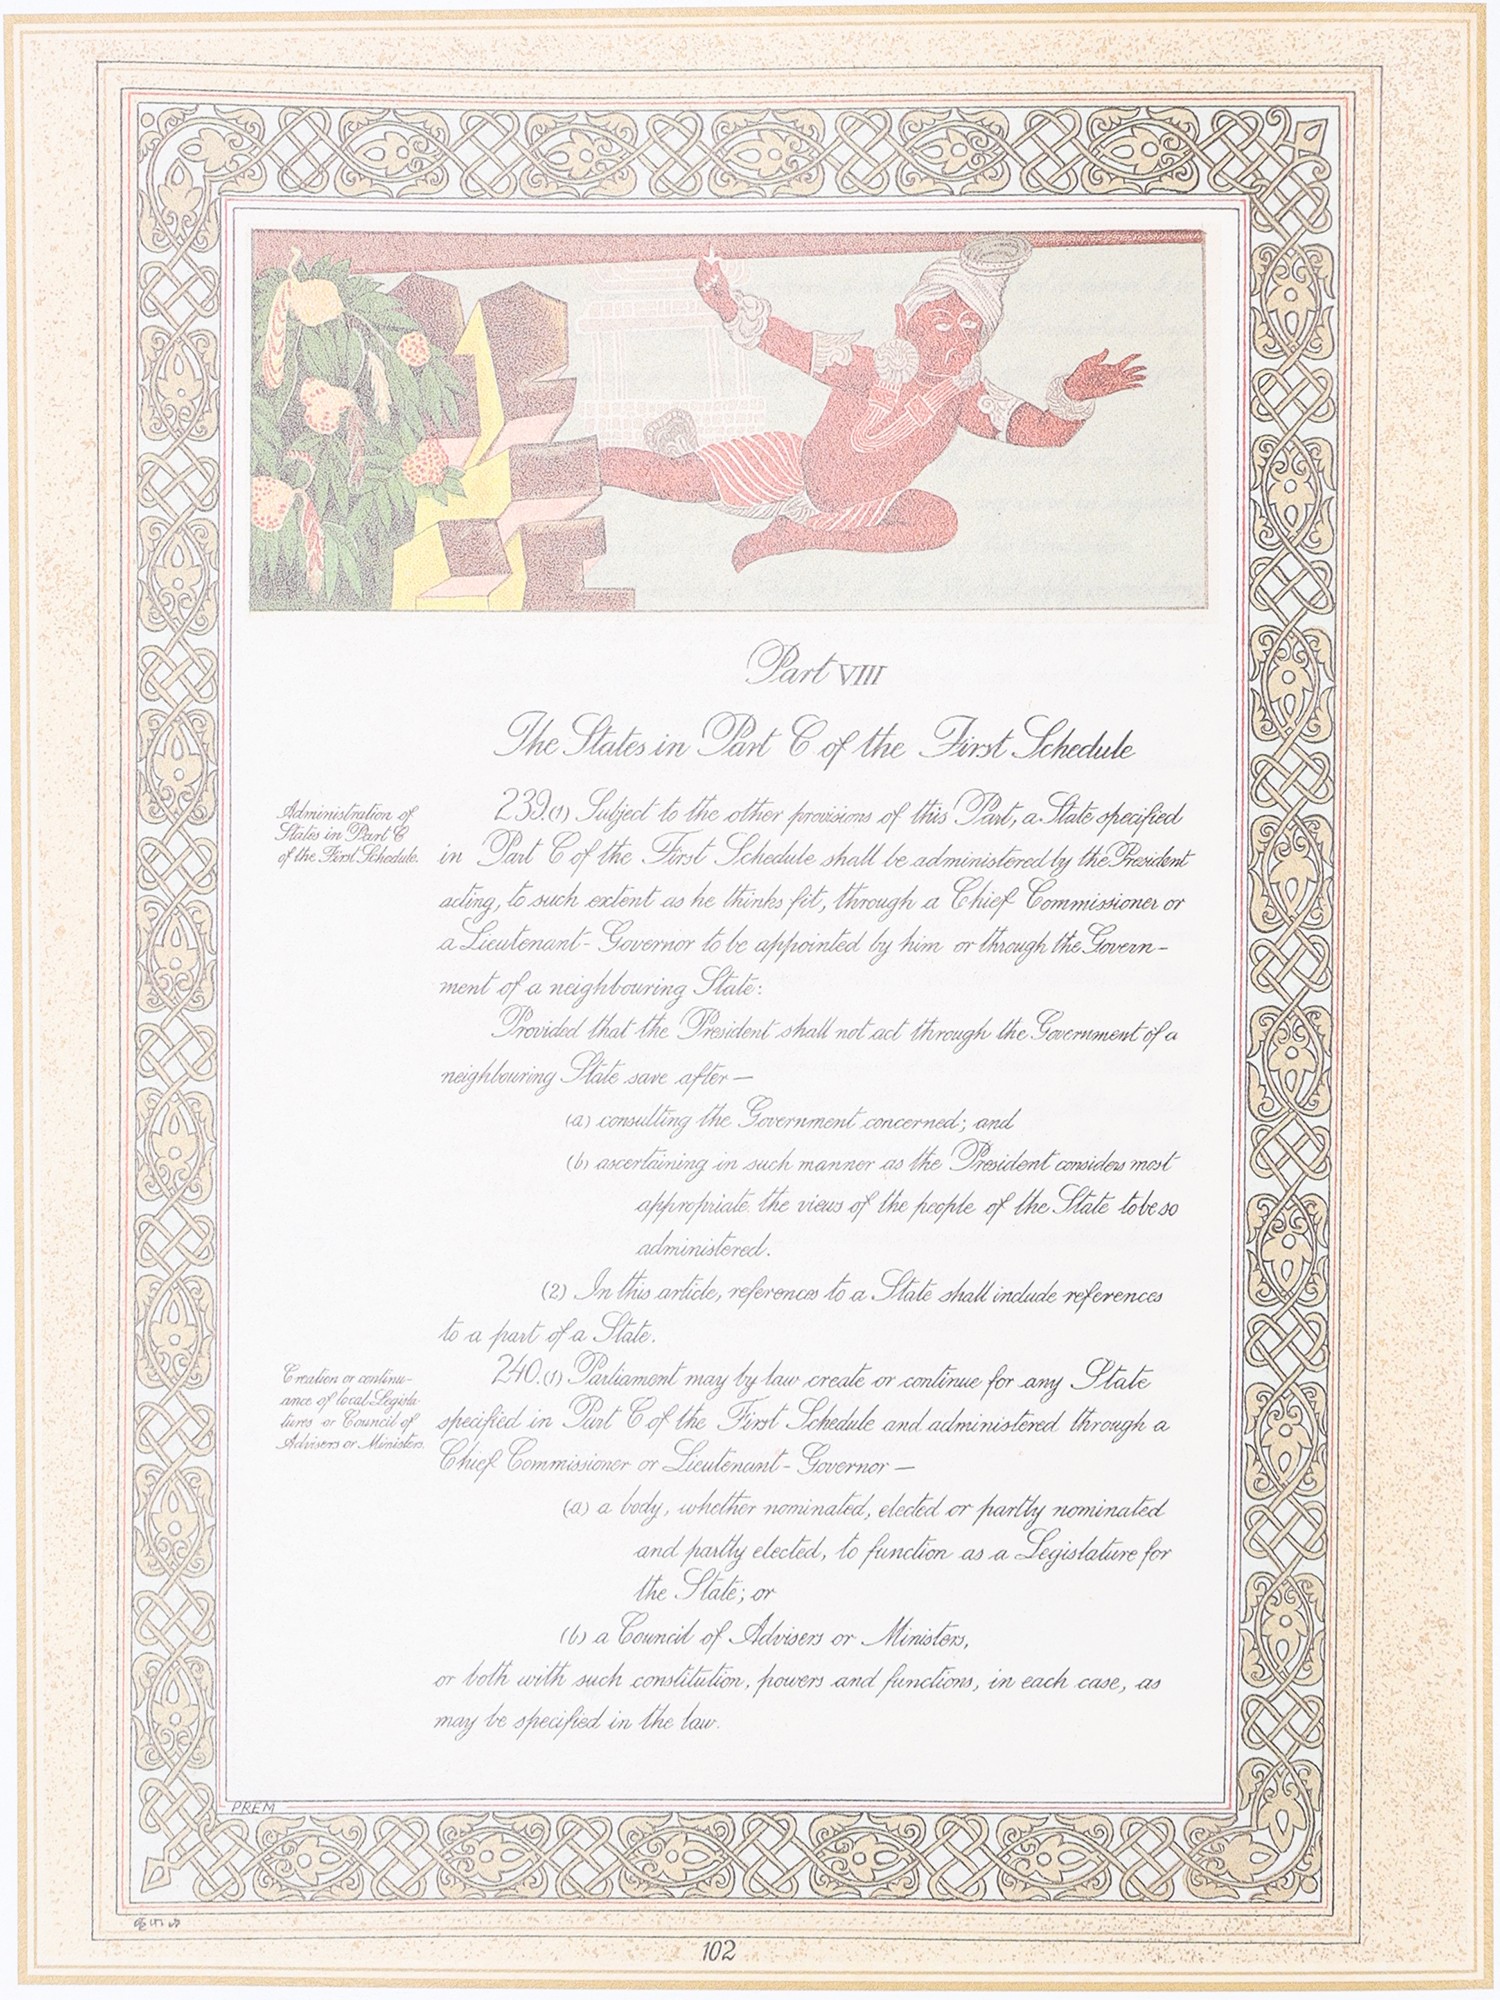 Part VIII
The States in Part C of the First Schedule
Administration of
States in Part C
of the First Schedule.
239.(1) Subject to the other provisions of this Part, a State specified
in Part C of the First Schedule shall be administered by the President
acting, to such extent as he thinks fit, through a Chief Commissioner or
a Lieutenant-Governor to be appointed by him or through the Govern-
ment of a neighbouring State:
Provided that the President shall not act through the Government of a
neighbouring State save after—
(a) consulting the Government concerned; and
(b) ascertaining in such manner as the President considers most
appropriate the views of the people of the State to be so
administered.
(2) In this article, references to a State shall include references
to a part of a State.
Creation or continu-
ance of local Legisla-
tures or Council of
Advisers or Ministers.
240.(1) Parliament may by law create or continue for any State
specified in Part C of the First Schedule and administered through a
Chief Commissioner or Lieutenant-Governor—
(a) a body, whether nominated, elected or partly nominated
and partly elected, to function as a Legislature for
the State; or
(b) a Council of Advisers or Ministers,
or both with such constitution, powers and functions, in each case, as
may be specified in the law.
PREM
102